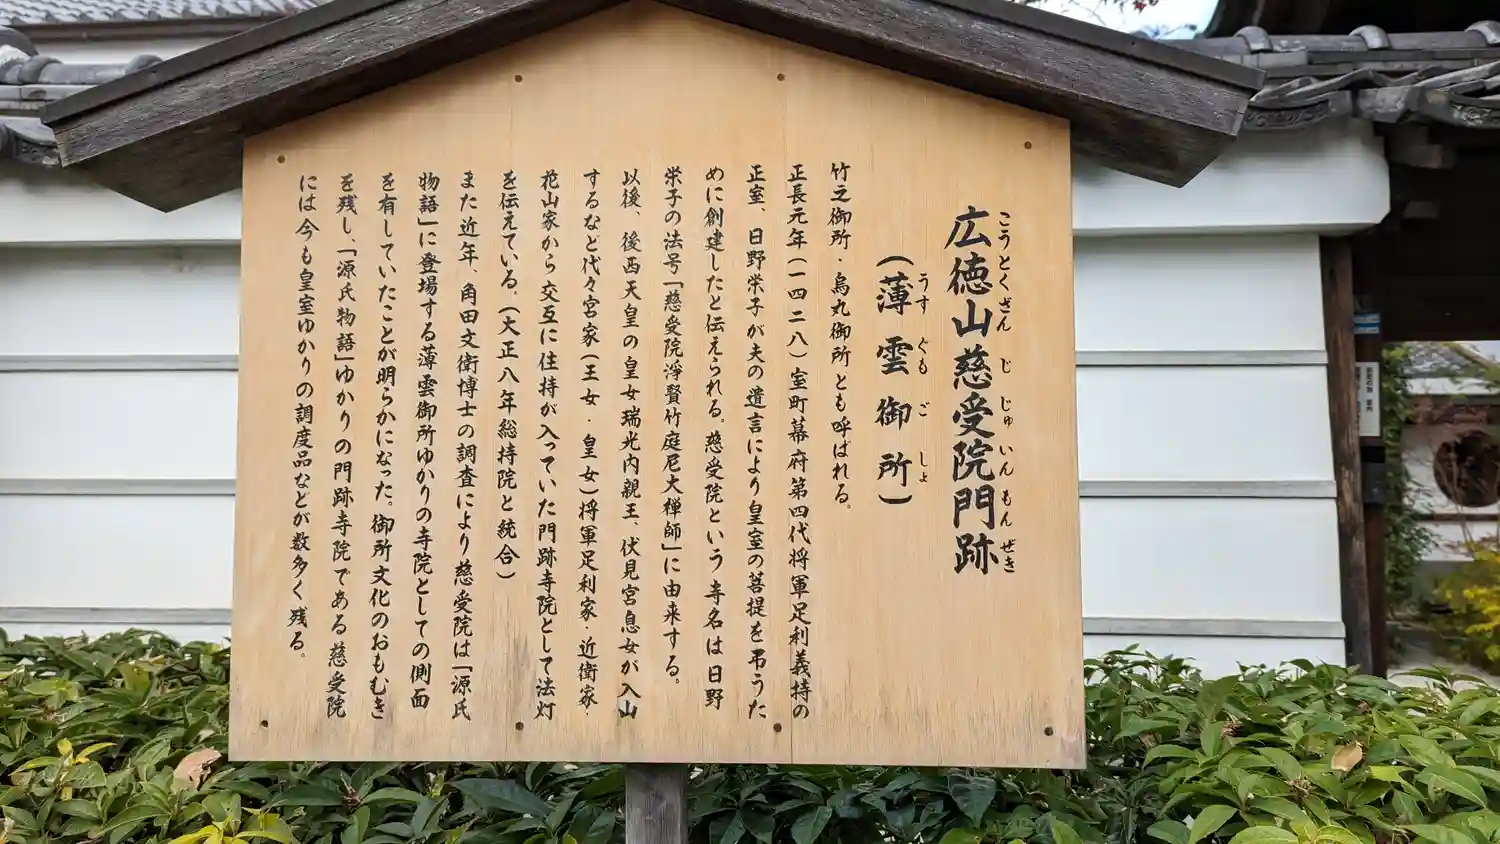 広徳山慈受院門跡
こうとくざん じ じゅ いん もん ぜき
(薄雲御所)
うす ぐも ご しょ
竹之御所・烏丸御所とも呼ばれる。
正長元年(一四二八)室町幕府第四代将軍足利義持の
正室、日野栄子が夫の遺言により皇室の菩提を弔うた
めに創建したと伝えられる。慈受院という寺名は日野
栄子の法号「慈受院淨賢竹庭尼大禅師」に由来する。
以後、後西天皇の皇女瑞光内親王、伏見宮息女が入山
するなど代々宮家(王女・皇女)将軍足利家・近衛家・
花山家から交互に住持が入っていた門跡寺院として法灯
を伝えている。(大正八年総持院と統合)
また近年、角田文衛博士の調査により慈受院は「源氏
物語」に登場する薄雲御所ゆかりの寺院としての側面
を有していたことが明らかになった。御所文化のおもむき
を残し、「源氏物語」ゆかりの門跡寺院である慈受院
には今も皇室ゆかりの調度品などが数多く残る。